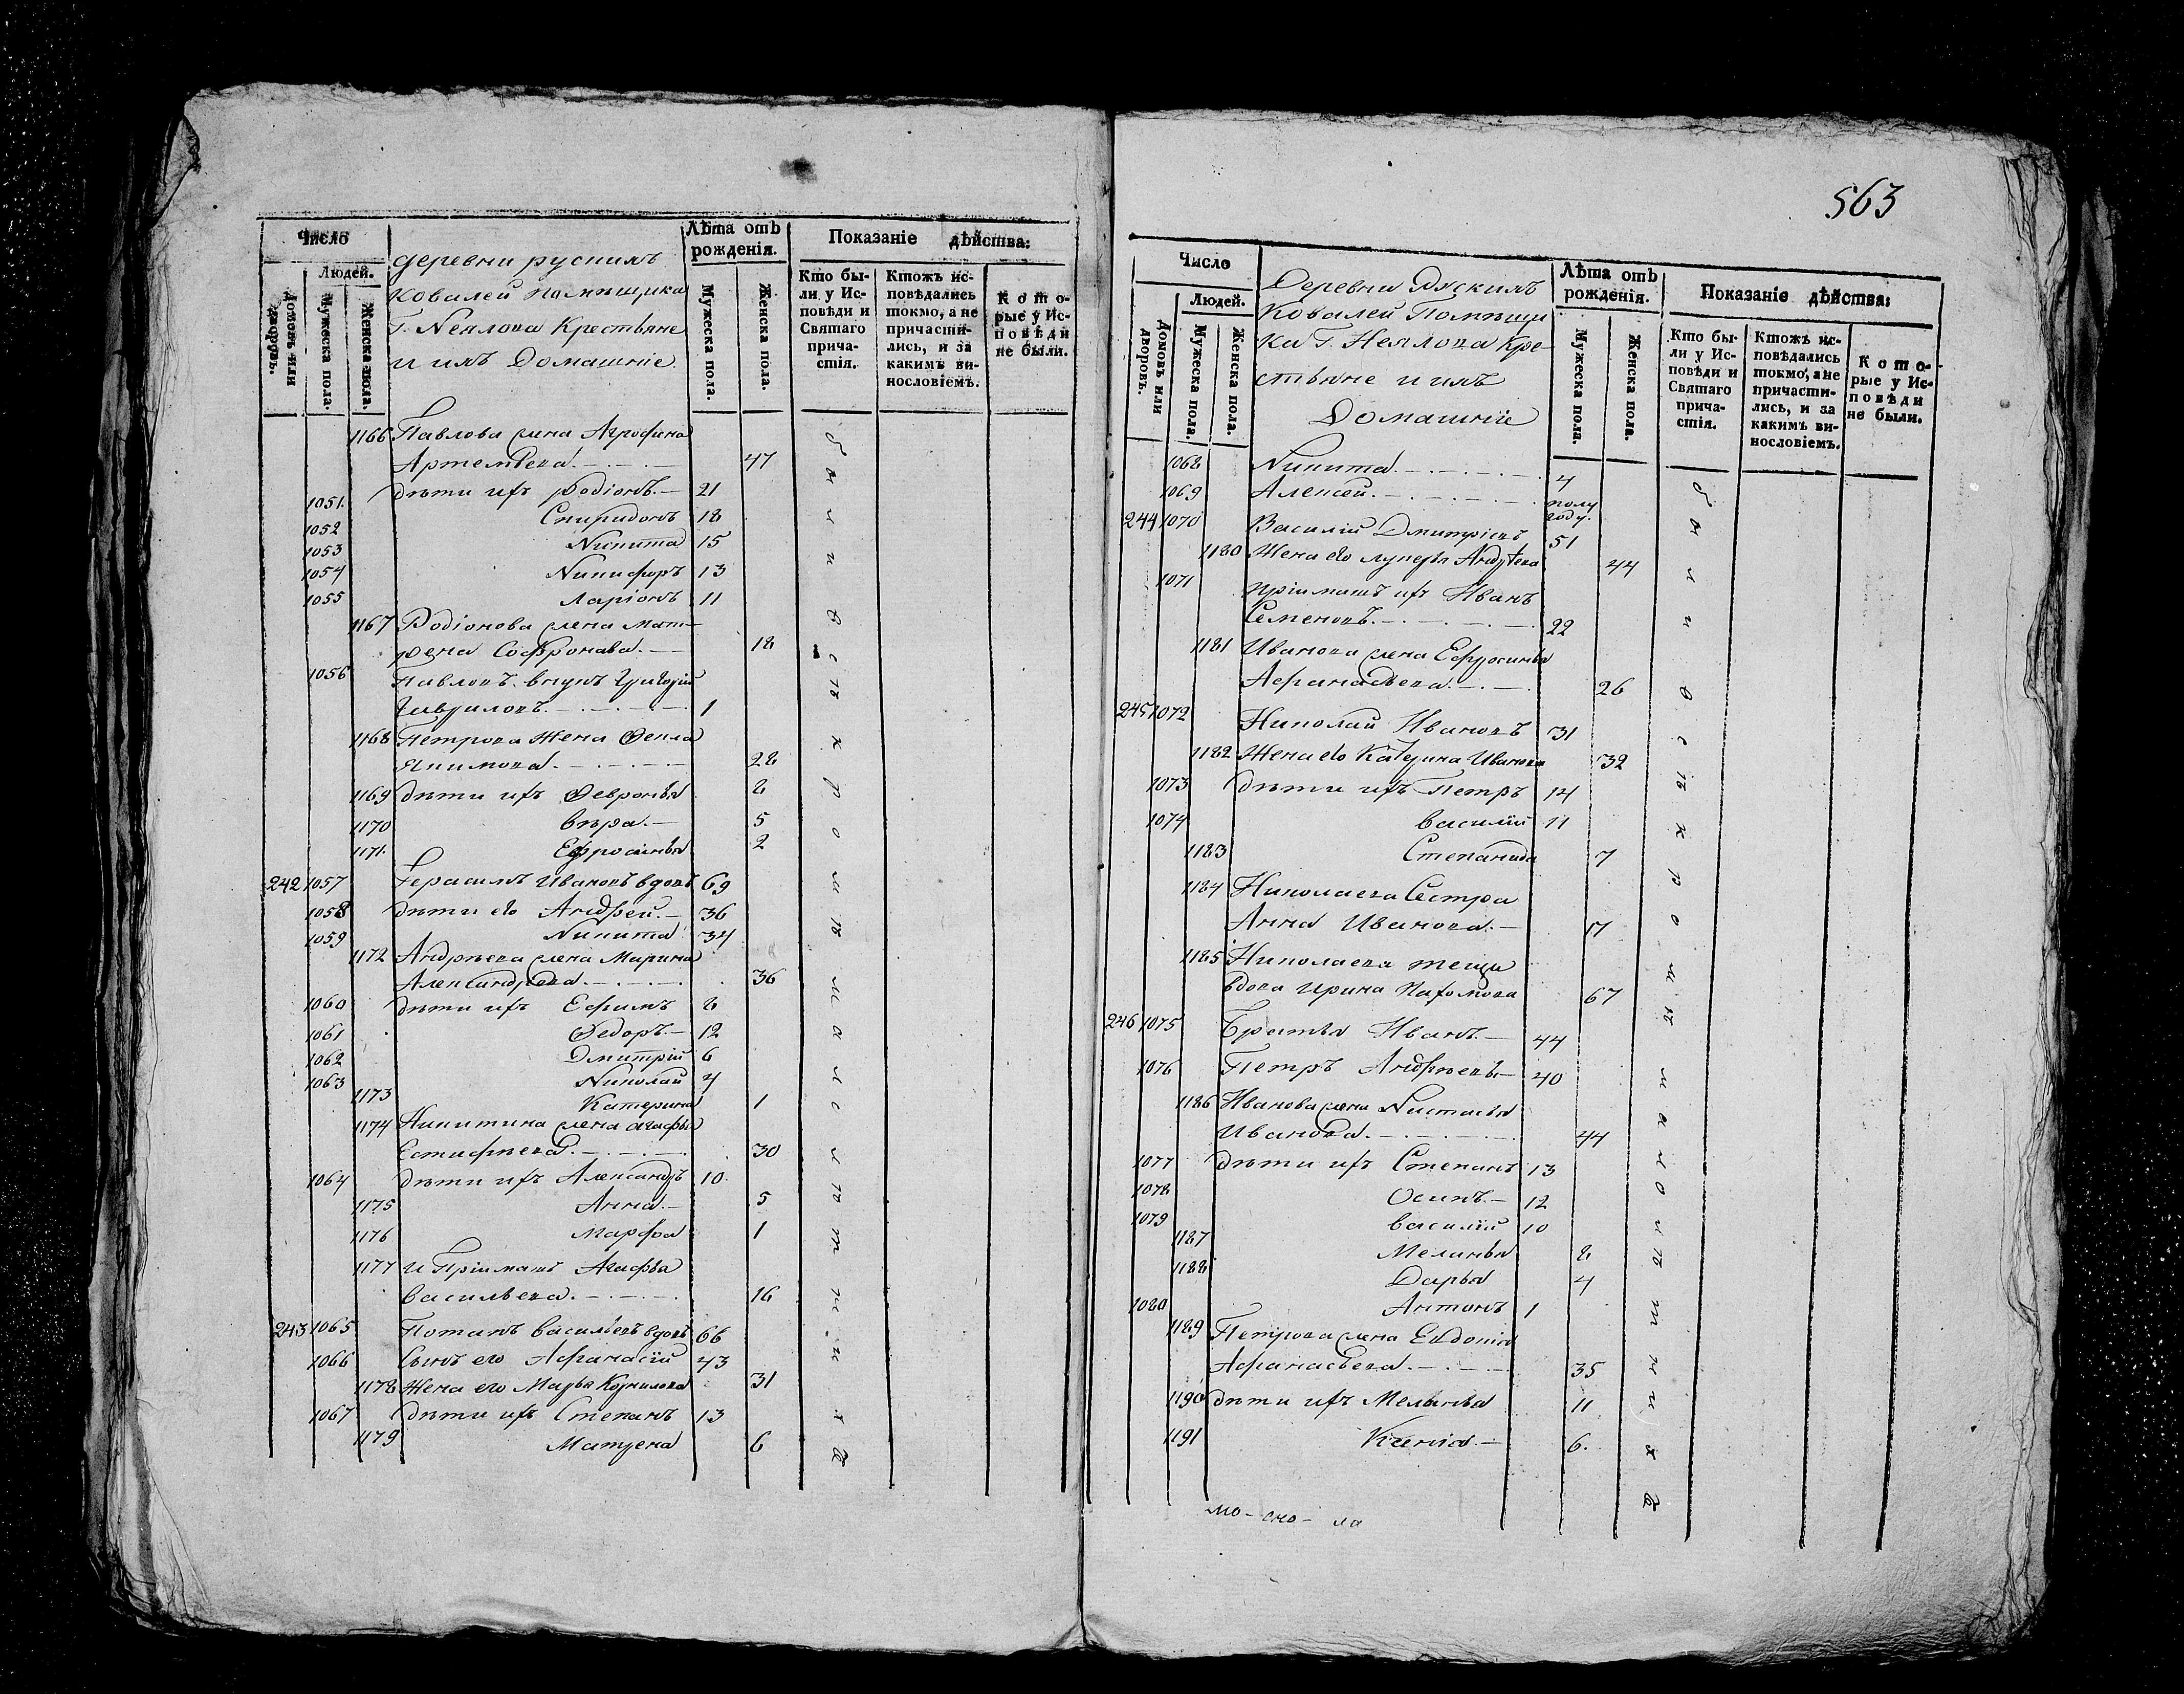 Число
Людей.
Домовъ или дворовъ.
Мужеска пола.
Женска пола.
деревни рускихъ
Ковалей помѣщика
Г. Неялова Крестьяне
и ихъ Домашніе
Лѣта отъ рожденія.
Мужеска пола.
Женска пола.
Показаніе дѣйства:
Кто были у Исповѣди и Святаго причастія.
Ктожъ исповѣдались токмо, а не причастились, и за какимъ винословіемъ.
Которые у Исповѣди не были.
1166 Павлова жена Агрофина
Артемьева 47
1051 дѣти ихъ родіонъ 21
1052 Спиридонъ 18
1053 Никита 15
1054 Никифоръ 13
1055 Ларіонъ 11
1167 Родіонова жена Мат-
рена Софронава 18
1056 Павловъ внукъ Григорій
Гавриловъ 1
1168 Петрова Жена Фекла
Якимова 28
1169 дѣти ихъ Февронья 8
1170 вѣра 5
1171 Ефросинья 2
242 1057 Герасимъ Ивановъ вдовъ 69
1058 дѣти его Андрей 36
1059 Никита 34
1172 Андрѣева жена Марина
Александрева 36
1060 дѣти ихъ Ефимъ 8
1061 Федоръ 12
1062 Дмитрій 6
1063 Николай 4
1173 Катерина 1
1174 Никитина жена агафья
Естифѣева 30
1064 дѣти ихъ Александръ 10
1175 Анна 5
1176 Марфа 1
1177 и Пріимакъ Агафья
васильева 16
243 1065 Потапъ васильевъ вдовъ 66
1066 Сынъ его Афанасій 43
1178 Жена его Марья Корнилова 31
1067 дѣти ихъ Степанъ 13
1179 Матрена 6
563
Число
Людей.
Домовъ или дворовъ.
Мужеска пола.
Женска пола.
Деревни Рускихъ
Ковалей Помѣщи
ка Г. Неялова Кре-
стьяне и ихъ
Домашніе
Лѣта отъ рожденія.
Мужеска пола.
Женска пола.
Показаніе дѣйства:
Кто были у Исповѣди и Святаго причастія.
Ктожъ исповѣдались токмо, а не причастились, и за какимъ винословіемъ.
Которые у Исповѣди не были.
1068 Никита 4
1069 Алексей полу году.
244 1070 Василій Дмитріевъ 51
1180 Жена его лукерья Андрѣева 44
1071 пріимакъ ихъ Иванъ
Семеновъ 22
1181 Иванова жена Ефросинья
Афанасьева 26
245 1072 Николай Ивановъ 31
1182 Жена его Катерина Иванова 32
1073 дѣти ихъ Петръ 14
1074 василій 11
1183 Степанида 7
1184 Николаева Сестра
Анна Иванова 17
1185 Николаева теща
вдова Ирина Пахомова 67
246 1075 Братья Иванъ 44
1076 Петръ Андрѣевы 40
1186 Иванова жена Настасья
Иванова 44
1077 дѣти ихъ Степанъ 13
1078 Осипъ 12
1079 василій 10
1187 Меланья 8
1188 Дарья 4
1080 Антонъ 1
1189 Петрова жена Евдокия
Афанасьева 35
1190 дѣти ихъ Меланья 11
1191 Ксенія 6.